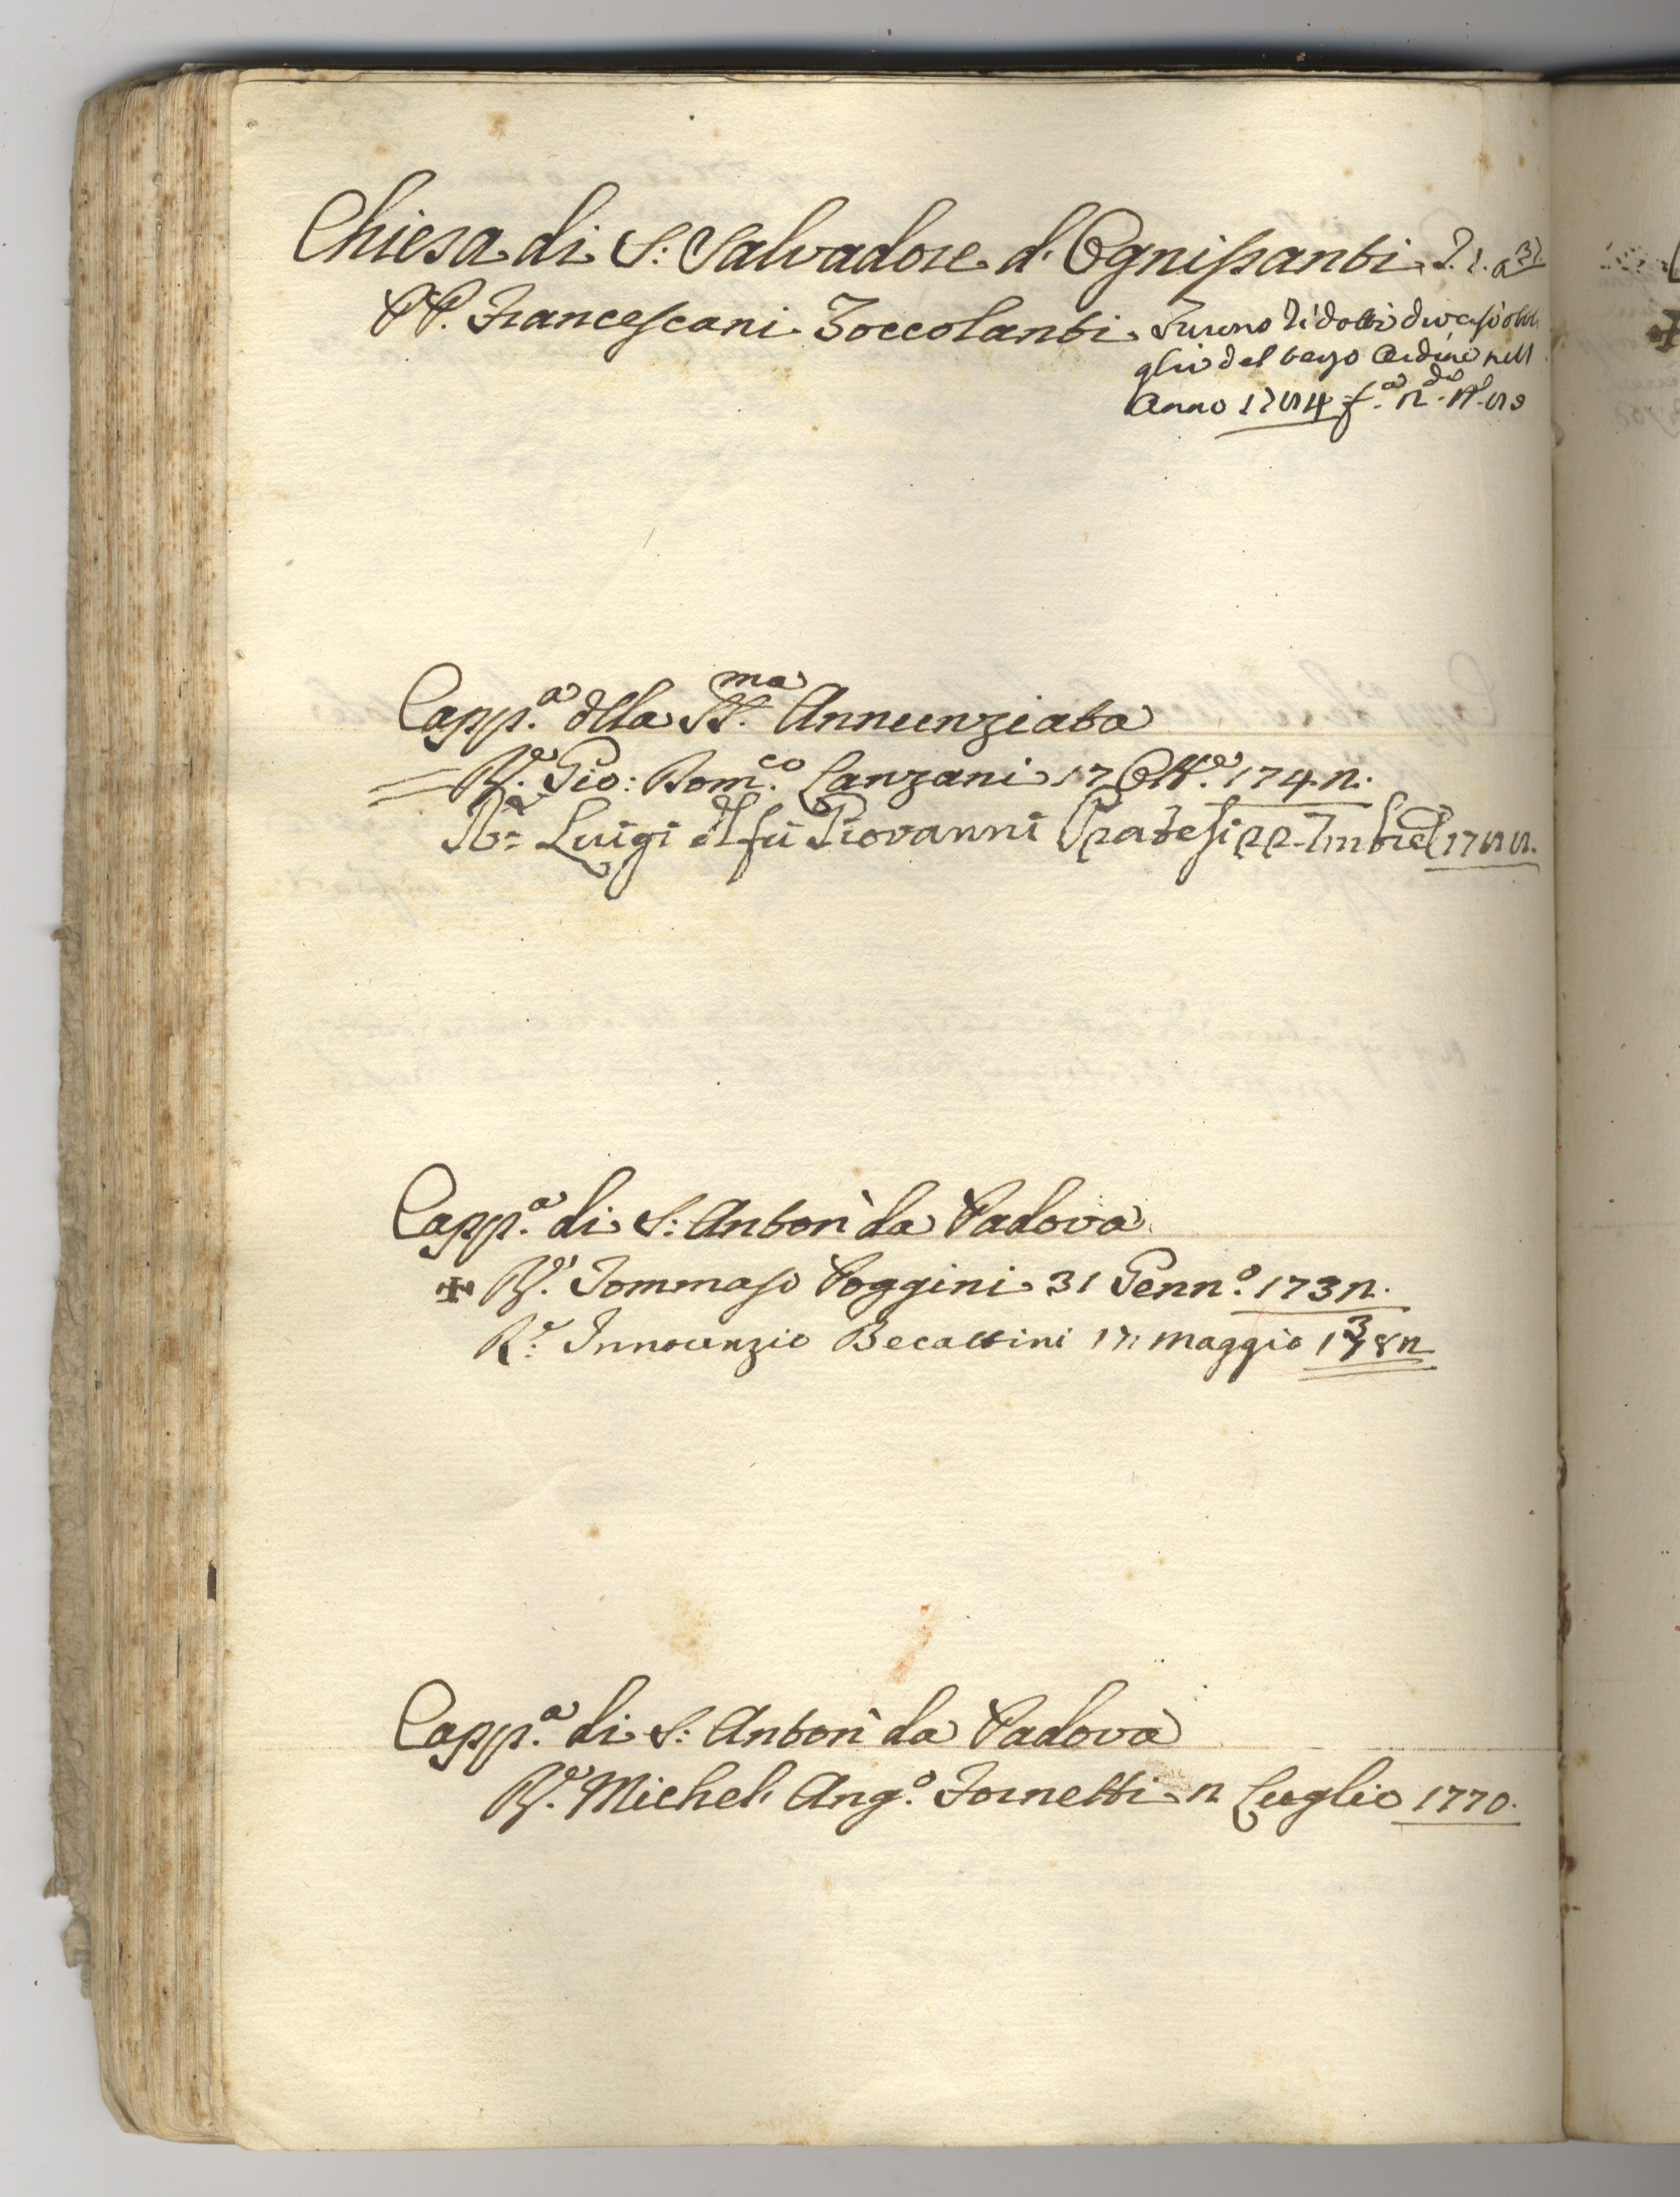 Chiesa di S: Salvadore d'Ognissanti
PP. Francescani Zoccolanti. Furono ridotti diversi obbl
ghi del terzo Ordine nell
Anno
Capp.a dlla SS.ma Annunziata
R.e Gio: Dom.co Lanzani 17 Ott.e 1742.
R.e Luigi dl fù Giovanni Pratesi 22
Capp.a di S: Anton da Padova
R.e Tommaso Poggini 31 Genn.o 1732.
R.e Innocenzio Becattini 17 Maggio
Capp.a di S: Anton da Padova
R.e Michel Ang.o Fornetti 2 Luglio 1770.